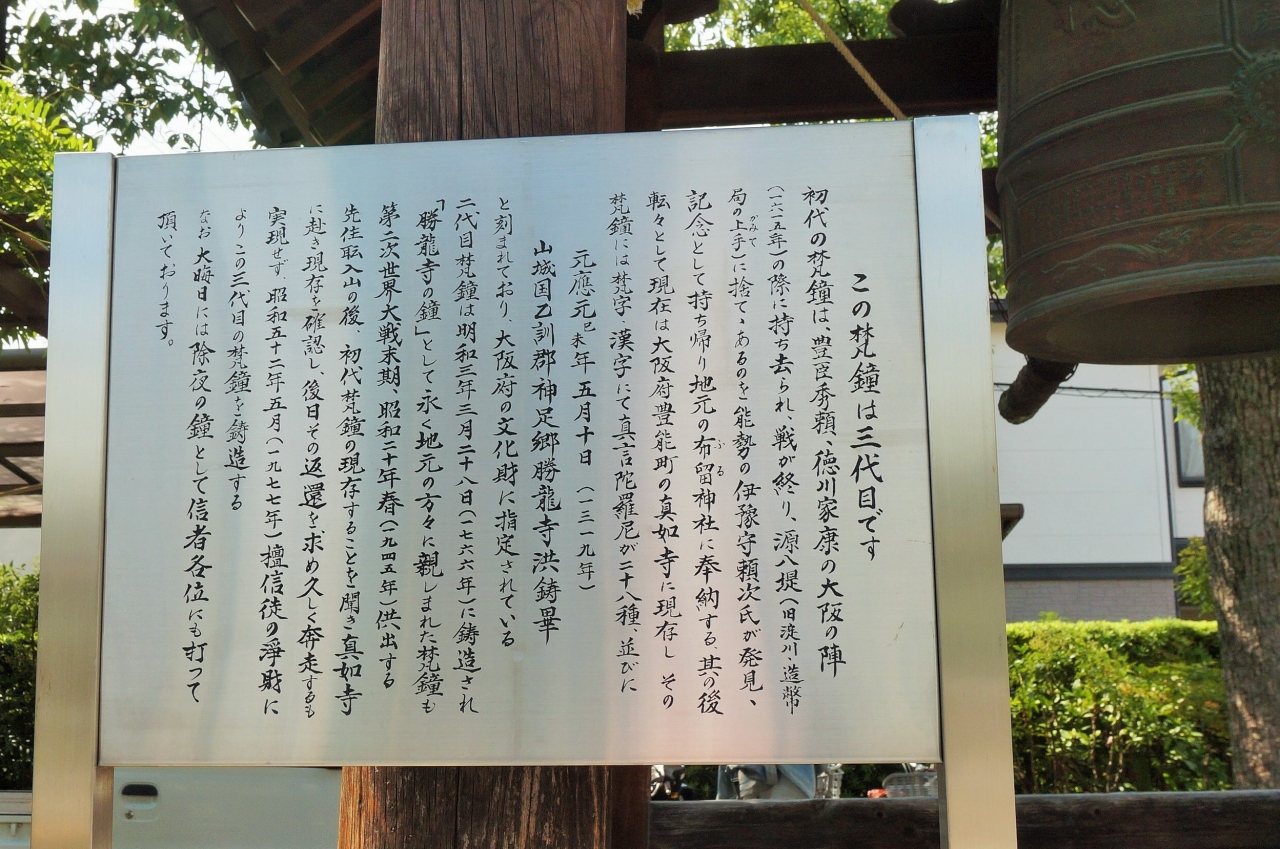 この梵鐘は三代目です
初代の梵鐘は、豊臣秀頼、徳川家康の大阪の陣
(一六一五年)の際に持ち去られ、戦が終り、源八堤(旧淀川、造幣
局の上手)に捨てゝあるのを能勢の伊豫守頼次氏が発見、
かみて
記念として持ち帰り地元の布留神社に奉納する、其の後
ふる
転々として現在は大阪府豊能町の真如寺に現存し その
梵鐘には梵字、漢字にて真言陀羅尼が二十八種、並びに
元應元己未年五月十日 (一三一九年)
山城国乙訓郡神足郷勝龍寺洪鋳畢
と刻まれており、大阪府の文化財に指定されている
二代目梵鐘は明和三年三月二十八日(一七六六年)に鋳造され
「勝龍寺の鐘」として永く地元の方々に親しまれた梵鐘も
第二次世界大戦末期、昭和二十年春(一九四五年)供出する
先住職入山の後、初代梵鐘の現存することを聞き真如寺
に赴き現存を確認し、後日その返還を求め久しく奔走するも
実現せず、昭和五十二年五月(一九七七年)檀信徒の浄財に
よりこの三代目の梵鐘を鋳造する
なお 大晦日には除夜の鐘として信者各位にも打って
頂いております。